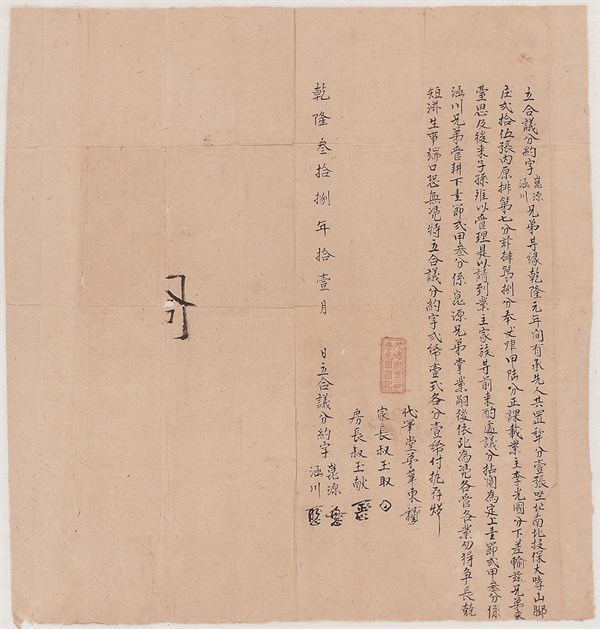 立合議分約字崑源涵川兄弟等緣乾隆元年間有承先人共置犂分壹張坐址南北投保大哮山腳
庄弍拾伍張內原排第七分
丈 甲陸分正課載業主李光國分下差輸茲兄弟
思及後來子孫难以管理是以請到業主家族等前來酌處議分拈鬮為定上壹節弍甲叁分係
涵川兄弟管耕下壹節弍甲叁分係崑源兄弟掌業嗣後依此為憑各管各業勿得爭長
短滋生事端口恐無憑特立合議分約字弍紙壹式各分壹紙付執存炤
代筆堂 華東
家長叔玉取
房長叔玉献
乾隆叁拾捌年拾壹月 日立合議分約字崑源涵川